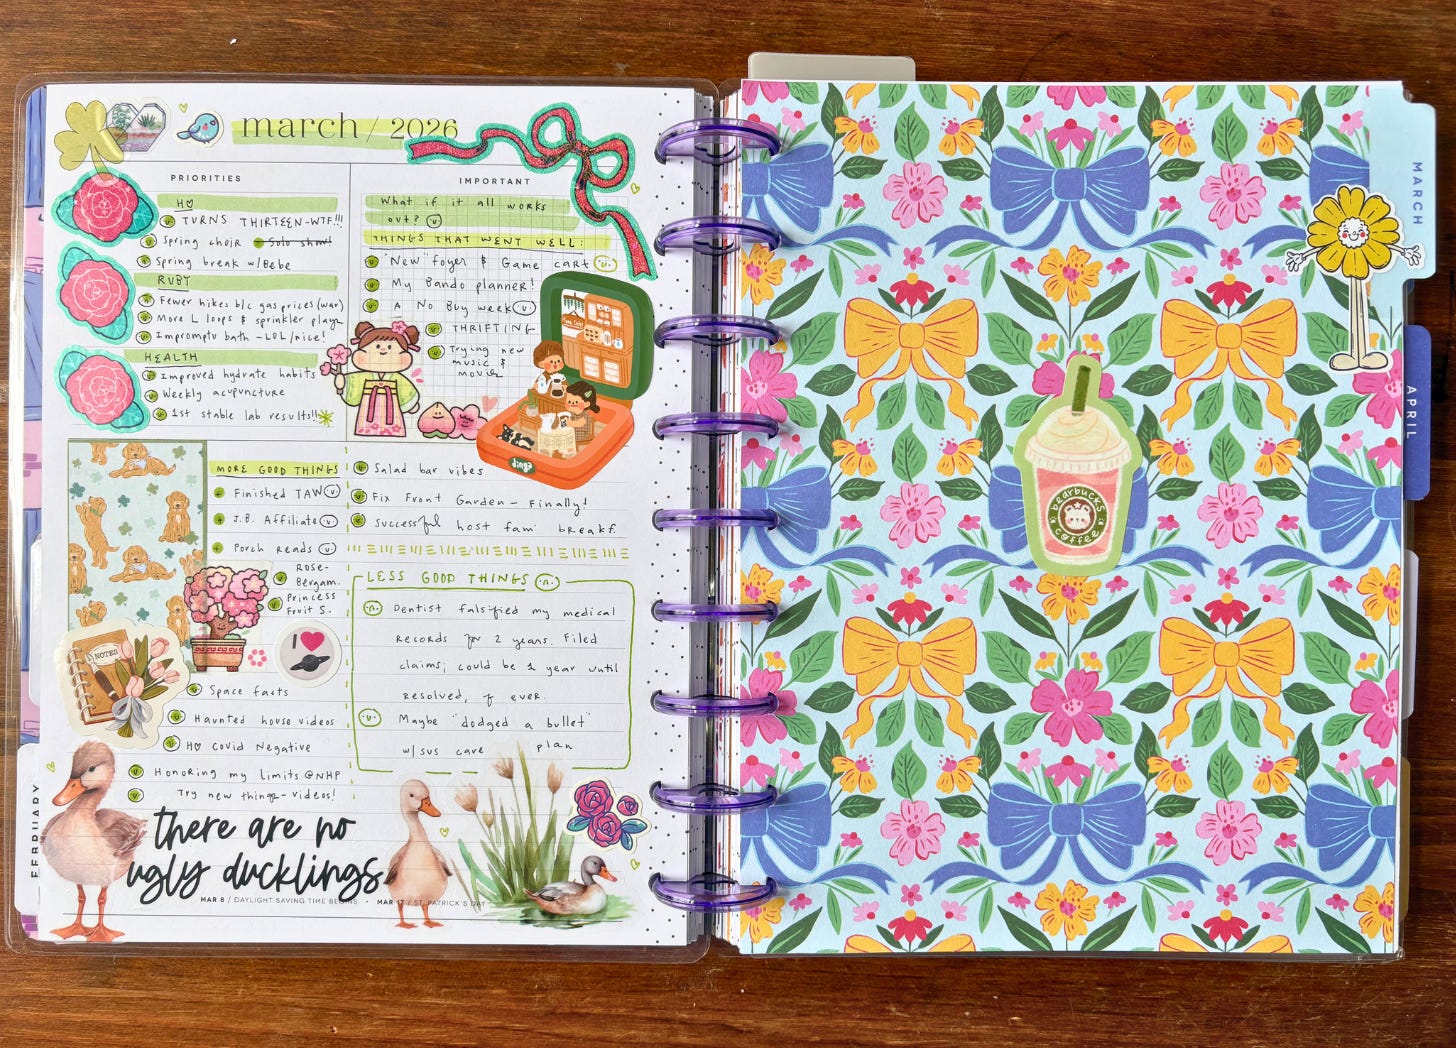 march / 2026
PRIORITIES
H♡
TURNS THIRTEEN-WTF!!!
Spring choir Solo show!
Spring break w/Bebe
RUBY
Fewer hikes b/c gas prices (war)
More L loops & sprinkler playz
Impromptu bath - LOL/nice!
HEALTH
Improved hydrate habits
Weekly acupuncture
1st stable lab results!!
IMPORTANT
What if it all works
out?
THINGS THAT WENT WELL:
"New" foyer & Game cart
My Bando planner!
A No Buy week
THRIFTING
Trying new
music &
movie
ding?
MORE GOOD THINGS
Finished TAW
J.B. Affiliate
Porch Reads
Rose-
Bergam.
Princess
Fruit S.
NOTES
I ♥
Space facts
Haunted house videos
H♡ Covid Negative
Honoring my limits @NHP
Try new things - videos!
Salad bar vibes
Fix Front Garden - Finally!
Successful host fam breakf.
LESS GOOD THINGS
Dentist falsified my medical
records for 2 years. Filed
claims; could be 1 year until
resolved, if ever.
Maybe "dodged a bullet"
w/sus care plan
there are no
ugly ducklings
MAR 8 / DAYLIGHT SAVING TIME BEGINS • MAR 17 / ST. PATRICK'S DAY
FEBRUARY
MARCH
APRIL
bearbucks
coffee